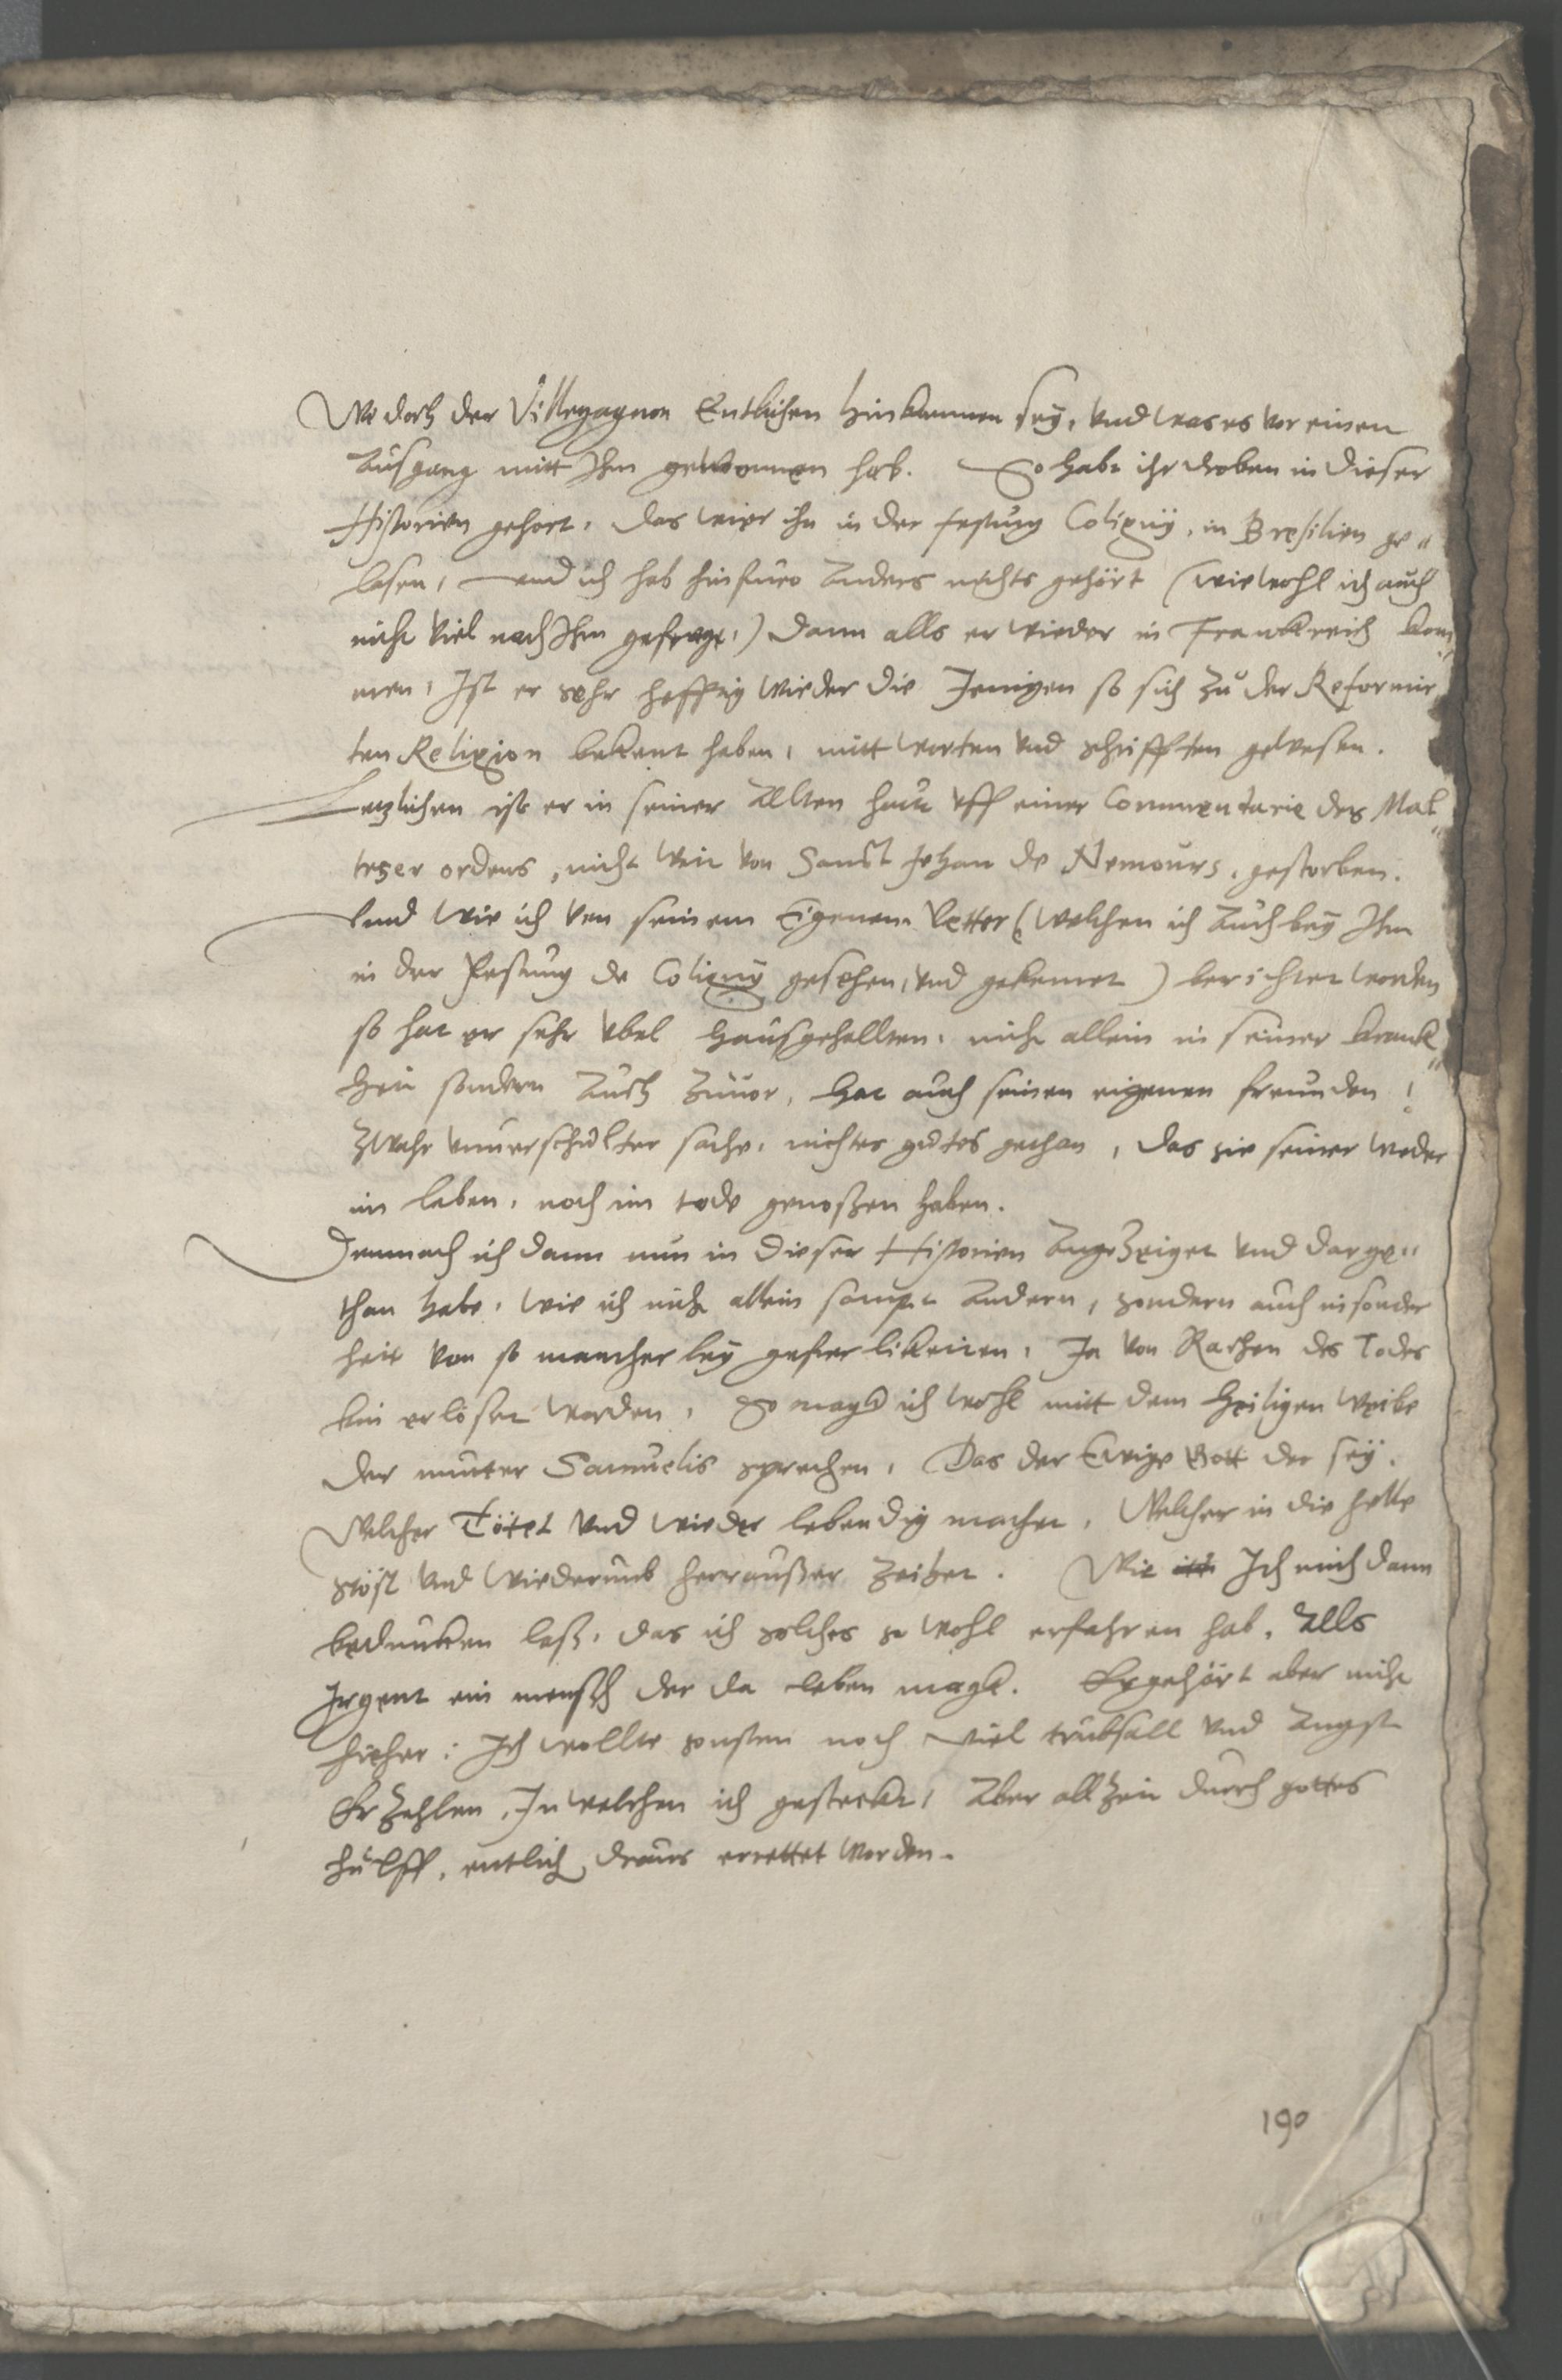 Wo doch der Villegagnon Entlichen hinkummen seÿ, vnd was es vor einen
Außgang mitt Ihm gewonnen hab. So habt ihr droben in dieser
Historien gehort, das wier ihn in der festung Colignÿ, in Bresilien ge„
lasen, vnd ich hab hinfuro Anders nichts gehört (wiewohl ich auch
nicht viel nach Ihm gefragt,) dann alls er wieder in Franckreich kom„
men, Ist er sehr hefftig wieder die Jenigen so sich zu der Reformir„
ten Religion bekent haben, mitt worten vnd schrifften gewesen.
Letzlichen ist er in seiner Allten haut vff einer Commentarie des Mal„
teser ordens, nicht weit von Sanct Jehan de Nemours, gestorben.
Vnd wie ich von seinem Eigenem Vetter (welchen ich Auch beÿ Ihm
in der Festung de Colignÿ gesehen, vnd gekennet) berichtet worden
so hat er sehr vbel haußgehallten, nicht allein in seiner kranck„
heit sondern Auch zuuor, hat auch seinen eigenen freunden
zwahr vnuerschulter sache, nichtes gutes gethan, das sie seiner weder
im leben, noch im tode genoßen haben.
Demnach ich dann nun in dieser Historien Angezeiget vnd darge„
than habe, wie ich nicht allein sampt Andern, sondern auch insonder
heit von so mancherleÿ geferlikeiten, Ja von Rachen des Todes
bin erlöset worden, So magk ich wohl mitt dem heiligen Weibe
der mutter Samuelis sprechen, Das der Ewige Gott der seÿ.
Welcher Tötet vnd wieder lebendig machet, Welcher in die helle
stöst vnd wiederumb herraußer zeihet. Wie Ich mich dann
bedunken laß, das ich solches so wohl erfahren hab, Alls
Irgent ein mensch der da leben magk. Es gehört aber nicht
hieher: Ich wollte sonsten noch viel trubsall vnd Angst
Erzehlen, In welchen ich gesteckt, Aber allzeit durch gottes
hulff, entlich draus errettet worden.
190